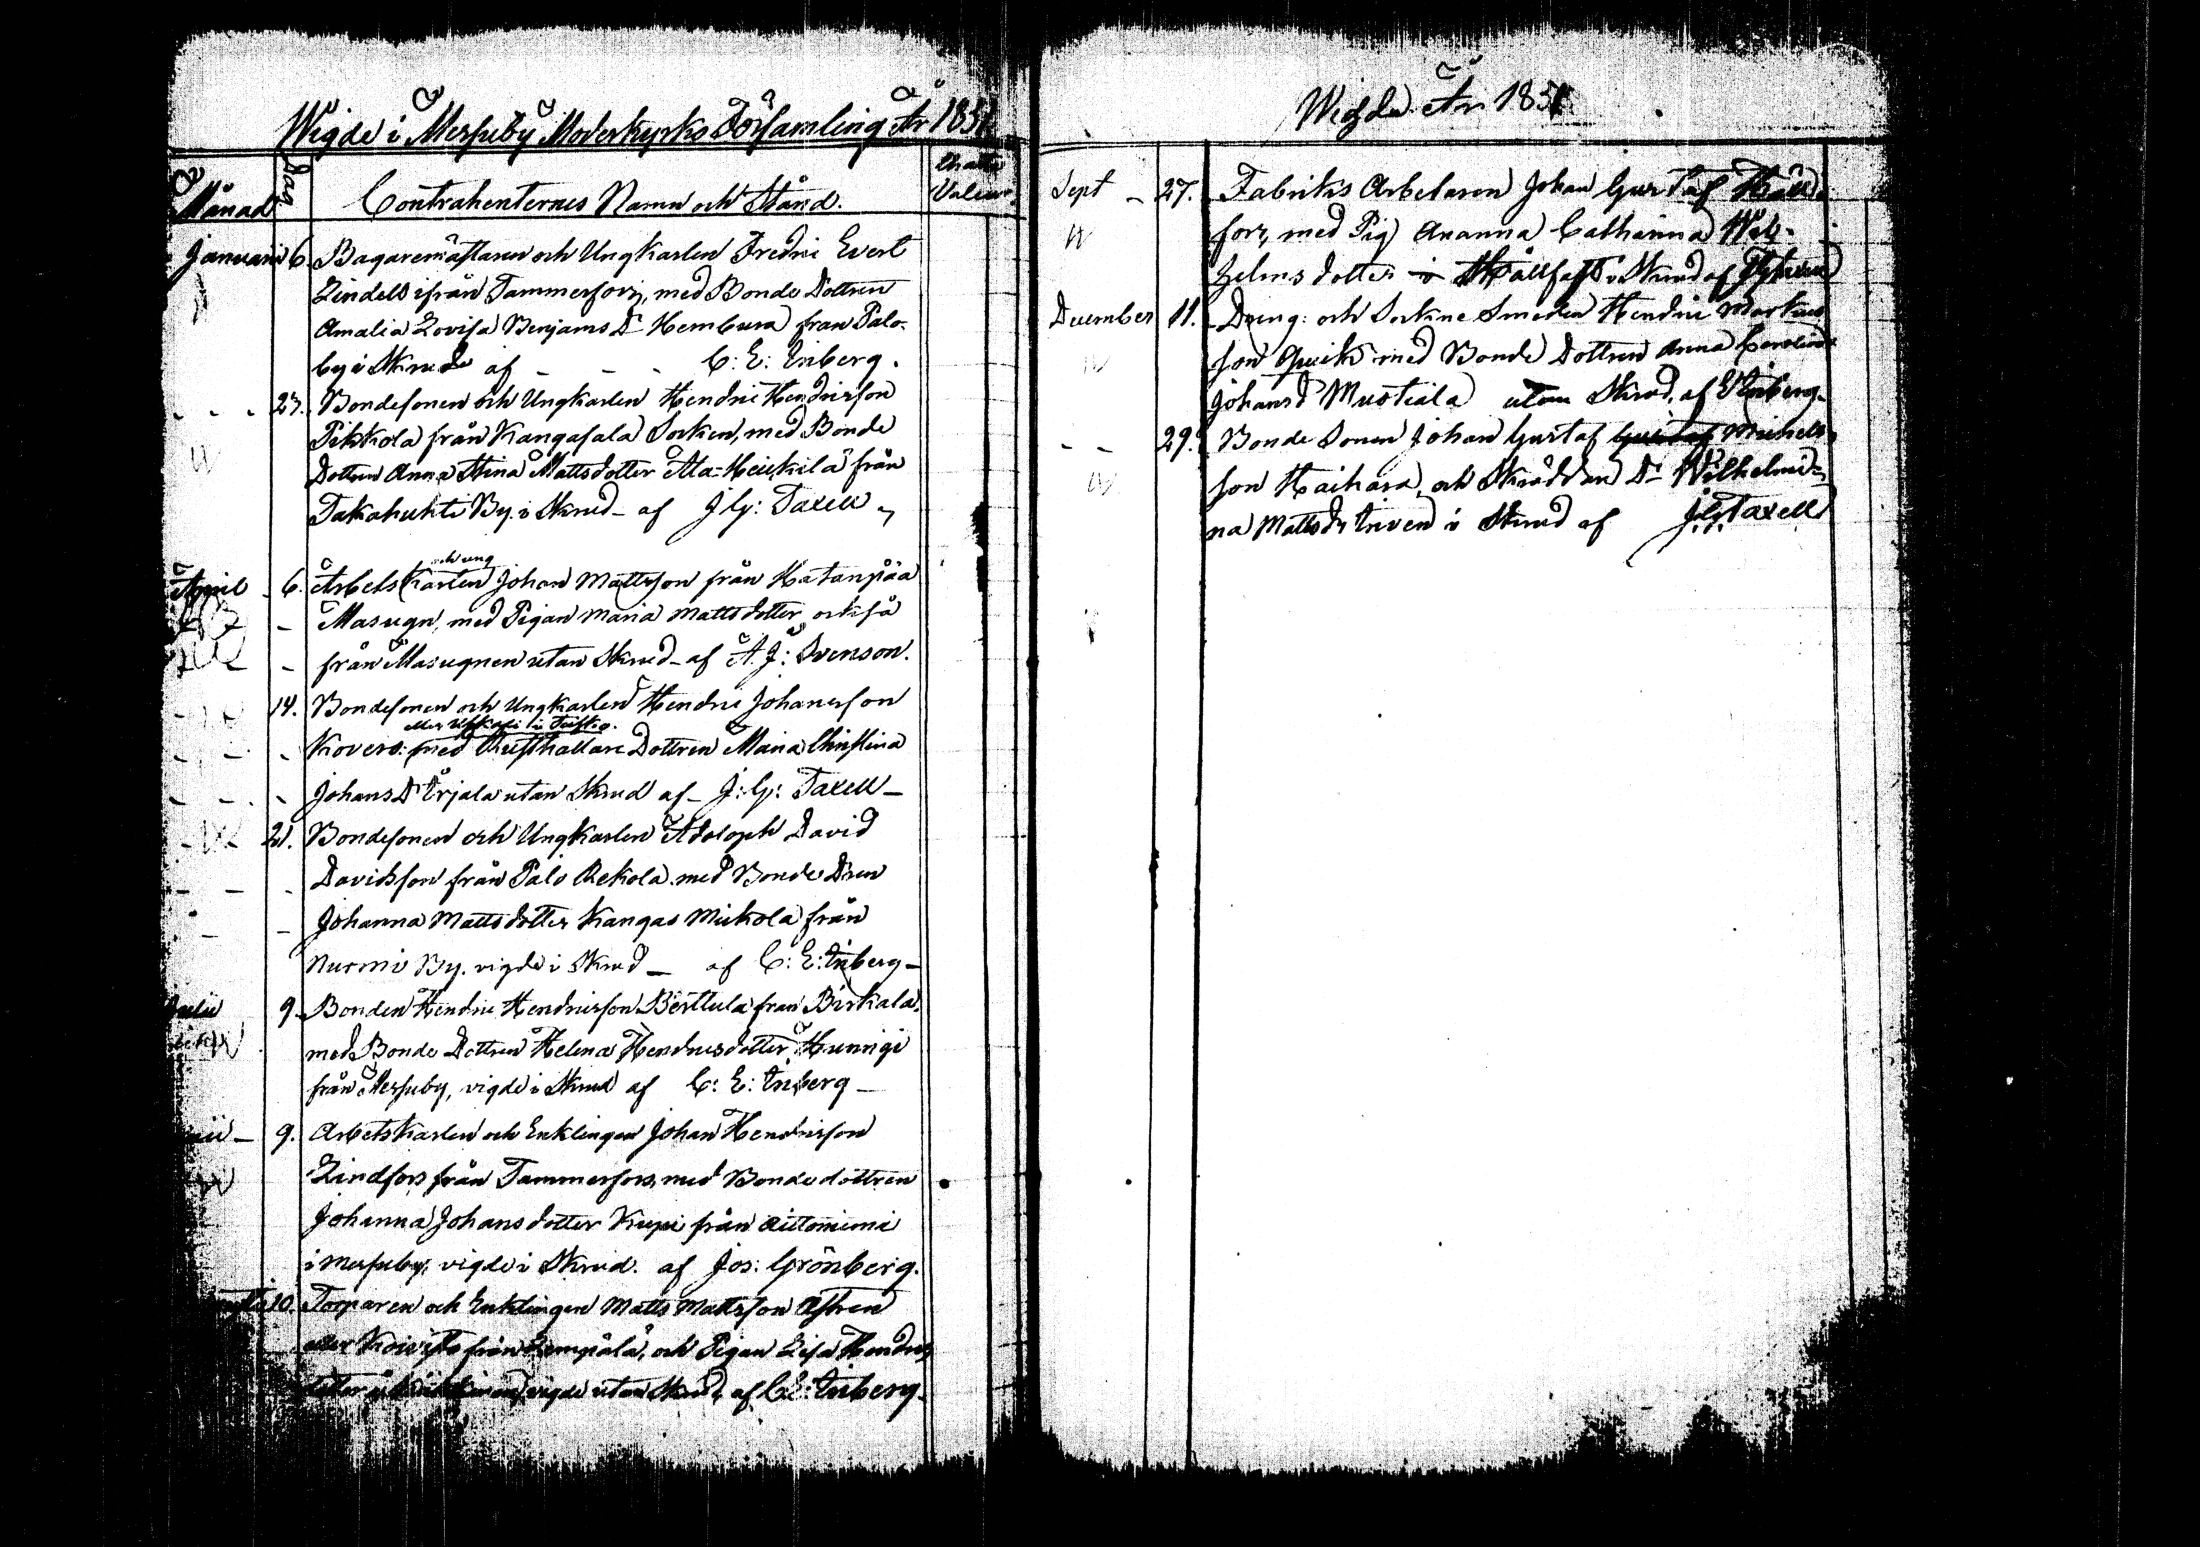 Wigde i Messuby Moderkyrko Församling År 1851
Månad Dag Contrahenternes Namn och Stånd.
Januarii 6. Bagaremästaren och Ungkarlen Fredric Evert
Lindell ifrån Tammerfors, med Bonde Dottren
Amalia Lovisa Benjams Dr Hembura från Palo-
by i Skrud af - - - C: E: Enberg.
- - - 27. Bondesonen och Ungkarlen Hendric Hendricsson
från Kangasala Socken, med Bonde
Dottren Anna Stina Mattsdotter Ala-Heikkilä från
Takahuhti By. i Skrud - af J: G: Taxell
och ung
April - 6. Arbetskarlen Johan Mattsson från Hatanpää
- Masugn, med Pigan Maria Mattsdotter också
- från Masugnen utan Skrud - af A. J: Svenson.
14. Bondesonen och Ungkarlen Hendric Johansson
eller
- - - Kovero: med Rusthållare Dottren Maria Christina
- - - Johans Dr Erjala utan Skrud af - J: G: Taxell -
21. Bondesonen och Ungkarlen Adoloph David
- - - Davidsson från Palo Rekola med Bonde Dren
- - Johanna Mattsdotter Kangas Mickola från
Nurmi By. vigde i Skrud - af C: E: Enberg -
9. Bonden Hendric Hendricsson Bërttula från Birkala,
med Bonde Dottren Helena Hendricsdotter
från Messuby, vigde i Skrud af C: E: Enberg -
- 9. Arbetskarlen och Enklingen Johan Hendricsson
Lindfors från Tammerfors, med Bondedottren
Johanna Johansdotter Kupi från Aitoniemi
i Messuby, vigde i Skrud. af Jos: Grönberg.
10. Torparen och Enklingen Matts Mattsson
eller Koivisto från Lempäla, och Pigan Lisa Hendrics
dotter vigde utan Skrud, af C: E: Enberg.
Wigde År 1851
Sept - 27. Fabriks Arbetaren Johan Gustaf Häll-
fors, med Pig Ananna Catharina Wil-
helmsdotter i Skrud af
December 11. Dreng: och Sockne Smeden Hendric Markus
son Qvick med Bonde Dottren Anna Carolina
Johans Dr Mustiala utan Skrud, af Enberg.
- - 29. Bonde Sonen Johan Gustaf Gustaf Michels
son Kaihara, och Skräddare Dr Wilhelmi-
na Matts dr i Skrud af J. G. Taxell